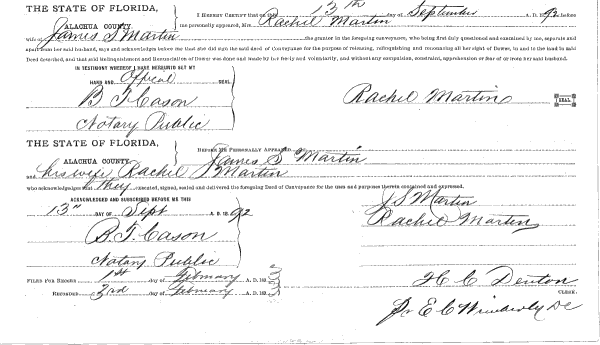 THE STATE OF FLORIDA,
ALACHUA COUNTY.
I HEREBY CERTIFY that on this 13th day of September A. D. 1892 before
me personally appeared, Mrs. Rachel Martin
wife of James S Martin the grantor in the foregoing conveyance, who being first duly questioned and examined by me, separate and
apart from her said husband, says and acknowledges before me that she did sign the said deed of Conveyance for the purpose of releasing, relinquishing and renouncing all her right of Dower, in and to the land in said
Deed described, and that said Relinquishment and Renunciation of Dower was done and made by her freely and voluntarily, and without any compulsion, constraint, apprehension or fear of or from her said husband.
IN TESTIMONY WHEREOF I HAVE HEREUNTO SET MY
HAND AND Official SEAL
B. F. Cason
Notary Public
Rachel Martin SEAL
THE STATE OF FLORIDA,
ALACHUA COUNTY.
BEFORE ME PERSONALLY APPEARED James S Martin
and his wife Rachel Martin
who acknowledges that they executed, signed, sealed and delivered the foregoing Deed of Conveyance for the uses and purposes therein contained and expressed.
ACKNOWLEDGED AND SUBSCRIBED BEFORE ME THIS
13" DAY OF Sept A. D. 1892
B. F. Cason
Notary Public
J S Martin
Rachel Martin
FILED FOR RECORD 1st day of February A. D. 189
RECORDED 3rd day of February A. D. 189
H. C. Denton
CLERK.
Pr E C Wimberly DC